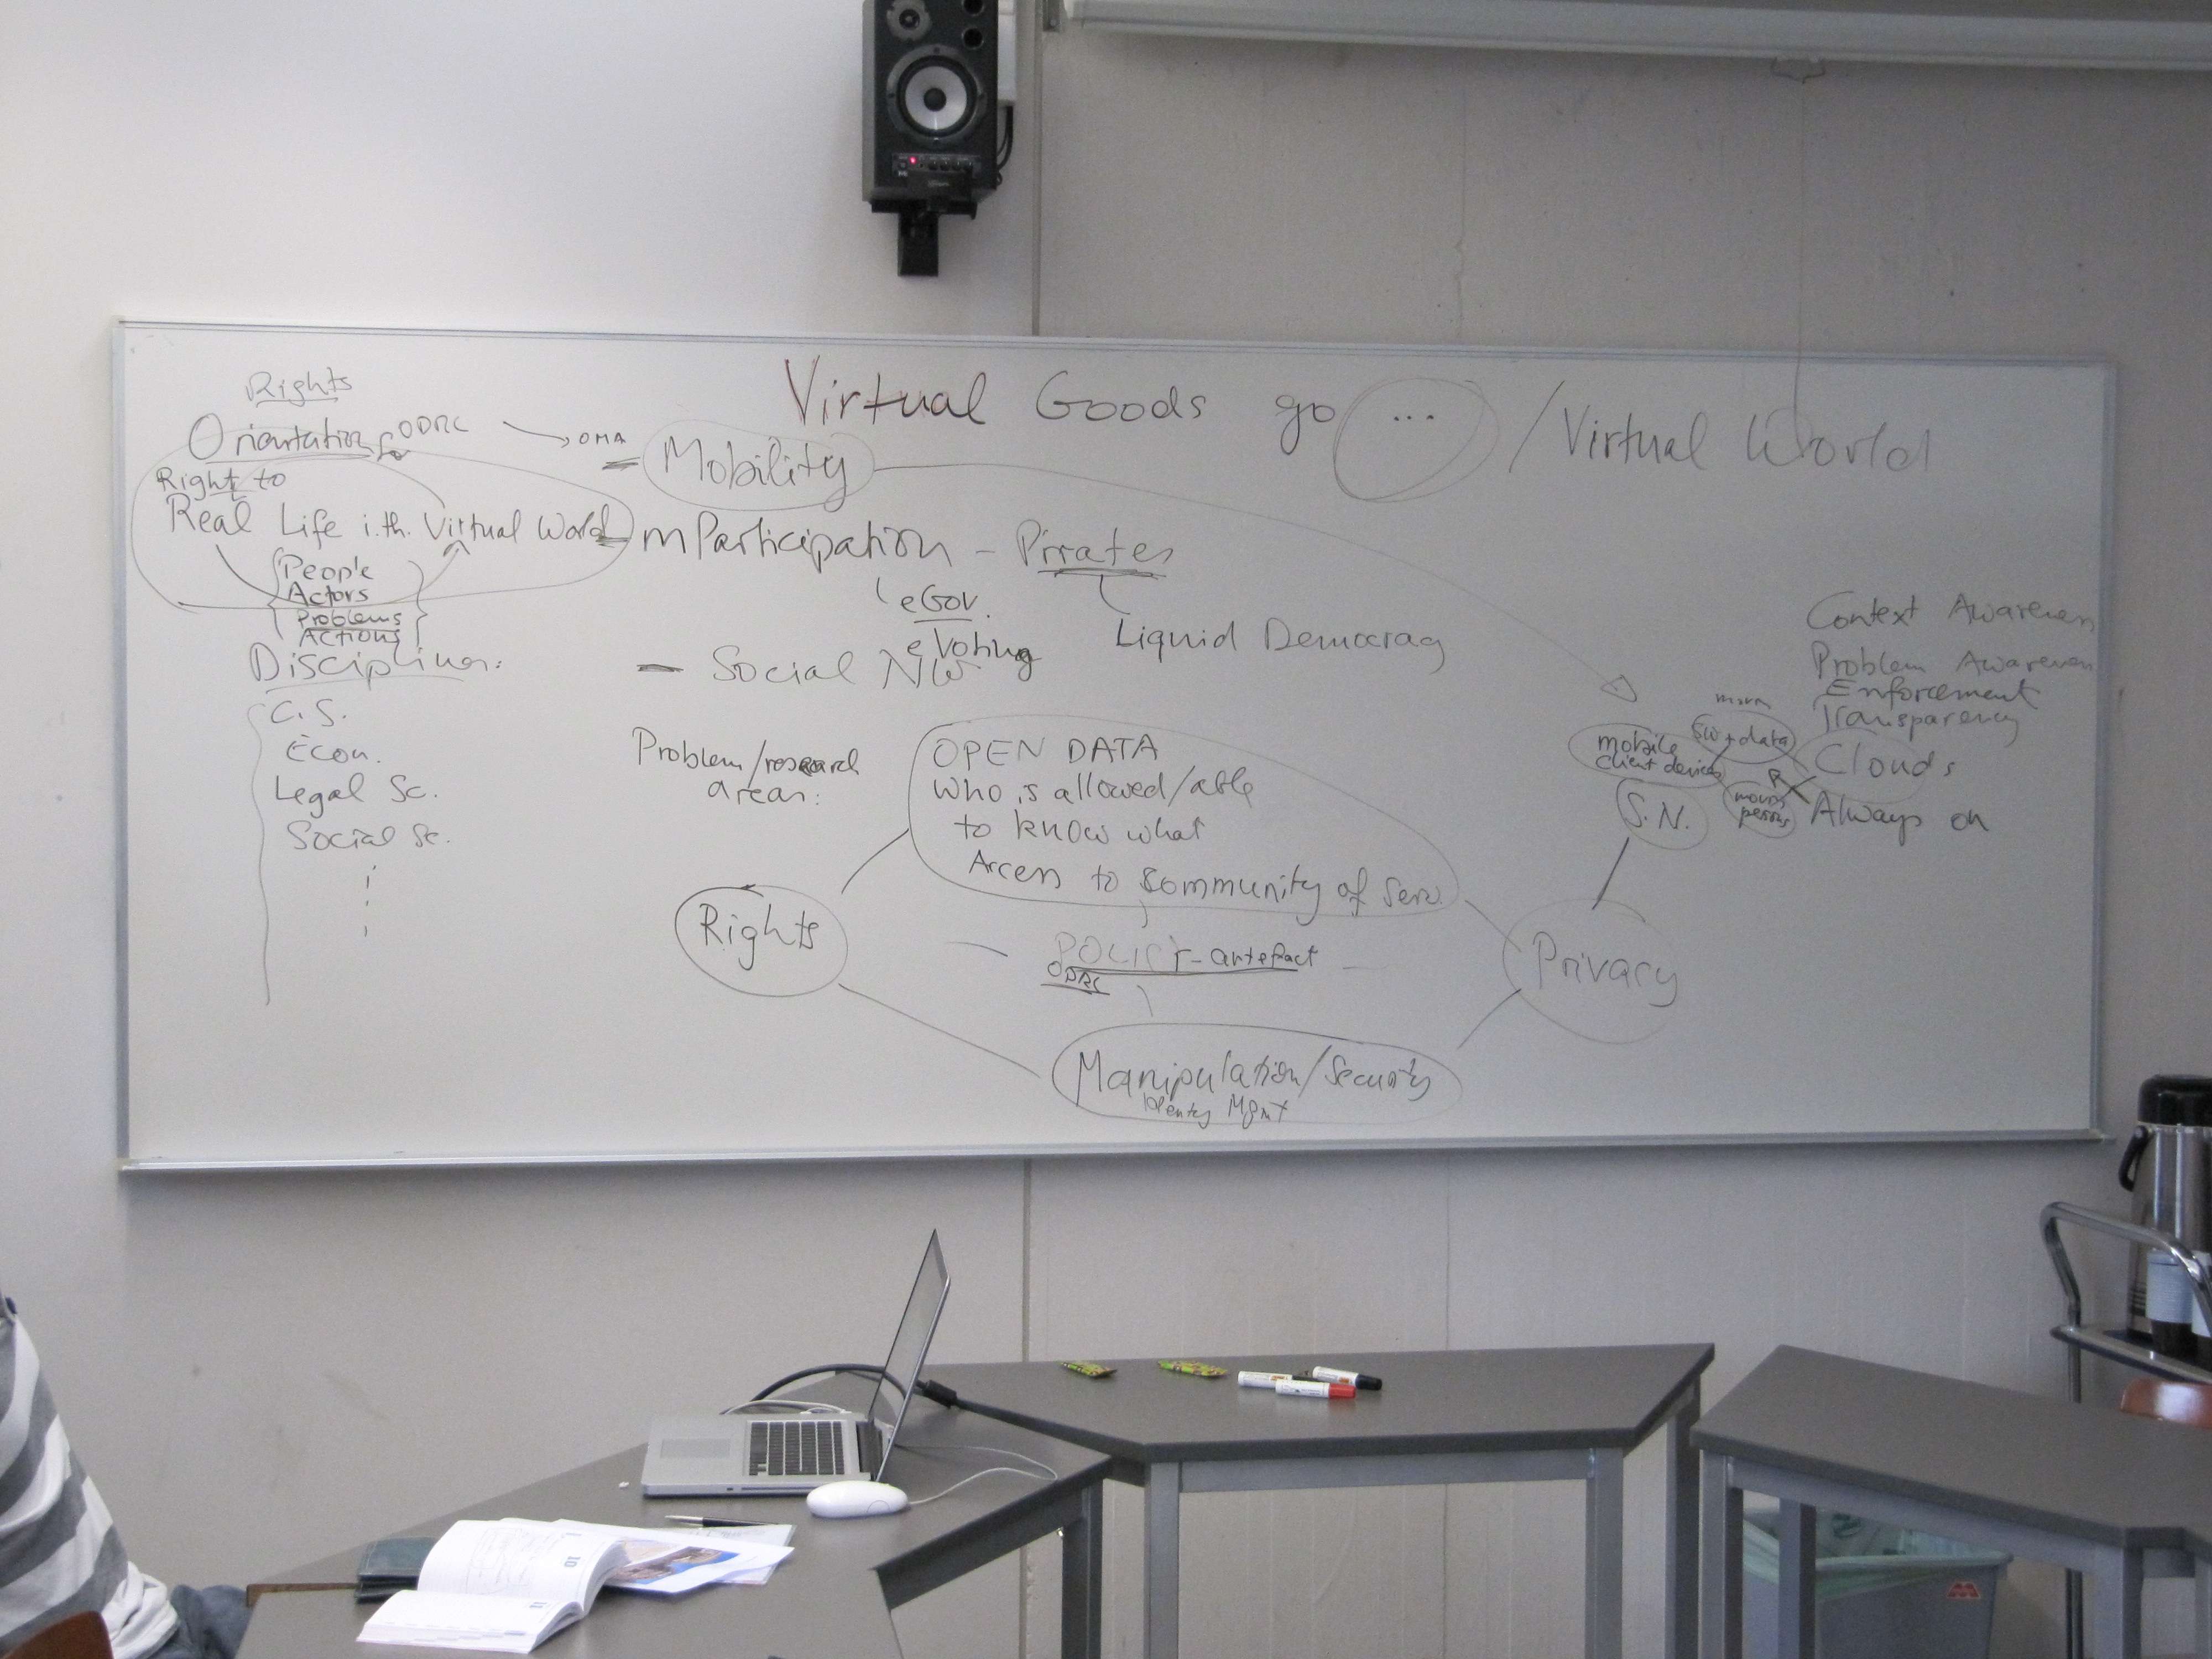 Virtual Goods go ... / Virtual World
Rights
Orientation for ODRL
OMA
Right to
Real Life i.th. Virtual World
People
Actors
Problems
Actions
Disciplines:
C.S.
Econ.
Legal Sc.
Social Sc.
- Mobility
- mParticipation - Pirates
eGov.
eVoting
Liquid Democracy
- Social NW
Problem/research
areas:
OPEN DATA
Who is allowed/able
to know what
Access to Community of Serv.
Rights
POLICY-artefact
ODRL
Privacy
Manipulation/Security
Identity Mgmt
Context Awareness
Problem Awareness
Enforcement
Transparency
Clouds
Always on
SW + data
mobile
client devices
moving
persons
S.N.
10
11